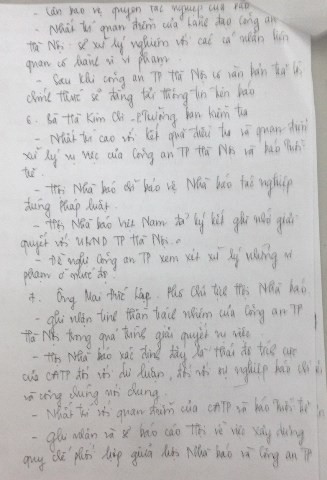 - Cần bảo vệ quyền tác nghiệp của báo
- Nhất trí quan điểm của lãnh đạo Công an
TP Hà Nội: sẽ xử lý nghiêm với các cá nhân liên
quan có hành vi vi phạm
- Sau khi công an TP Hà Nội có văn bản trả lời
chính thức sẽ đăng tải thông tin lên báo
6. Bà Hà Kim Chi - Trưởng ban kiểm tra
- Nhất trí cao với kết quả điều tra và quan điểm
xử lý vụ việc của Công an TP Hà Nội và báo
- Hội Nhà báo sẽ bảo vệ Nhà báo tác nghiệp
đúng pháp luật.
- Hội Nhà báo Việt Nam đã ký kết ghi nhớ giải
quyết với UBND TP Hà Nội.
- Đề nghị Công an TP xem xét xử lý những vi
phạm ở mức
7. Ông Mai Đức Lộc. Phó Chủ tịch Hội Nhà báo
- ghi nhận tinh thần trách nhiệm của Công an TP
Hà Nội trong quá trình giải quyết vụ việc.
- Hội Nhà báo xác định đây là thái độ tích cực
của CATP đối với dư luận, đối với sự nghiệp báo chí
và công chúng nói chung.
- Nhất trí với quan điểm của CATP và báo
- ghi nhận và sẽ báo cáo Hội về việc xây dựng
quy chế phối hợp giữa Hội Nhà báo và Công an TP